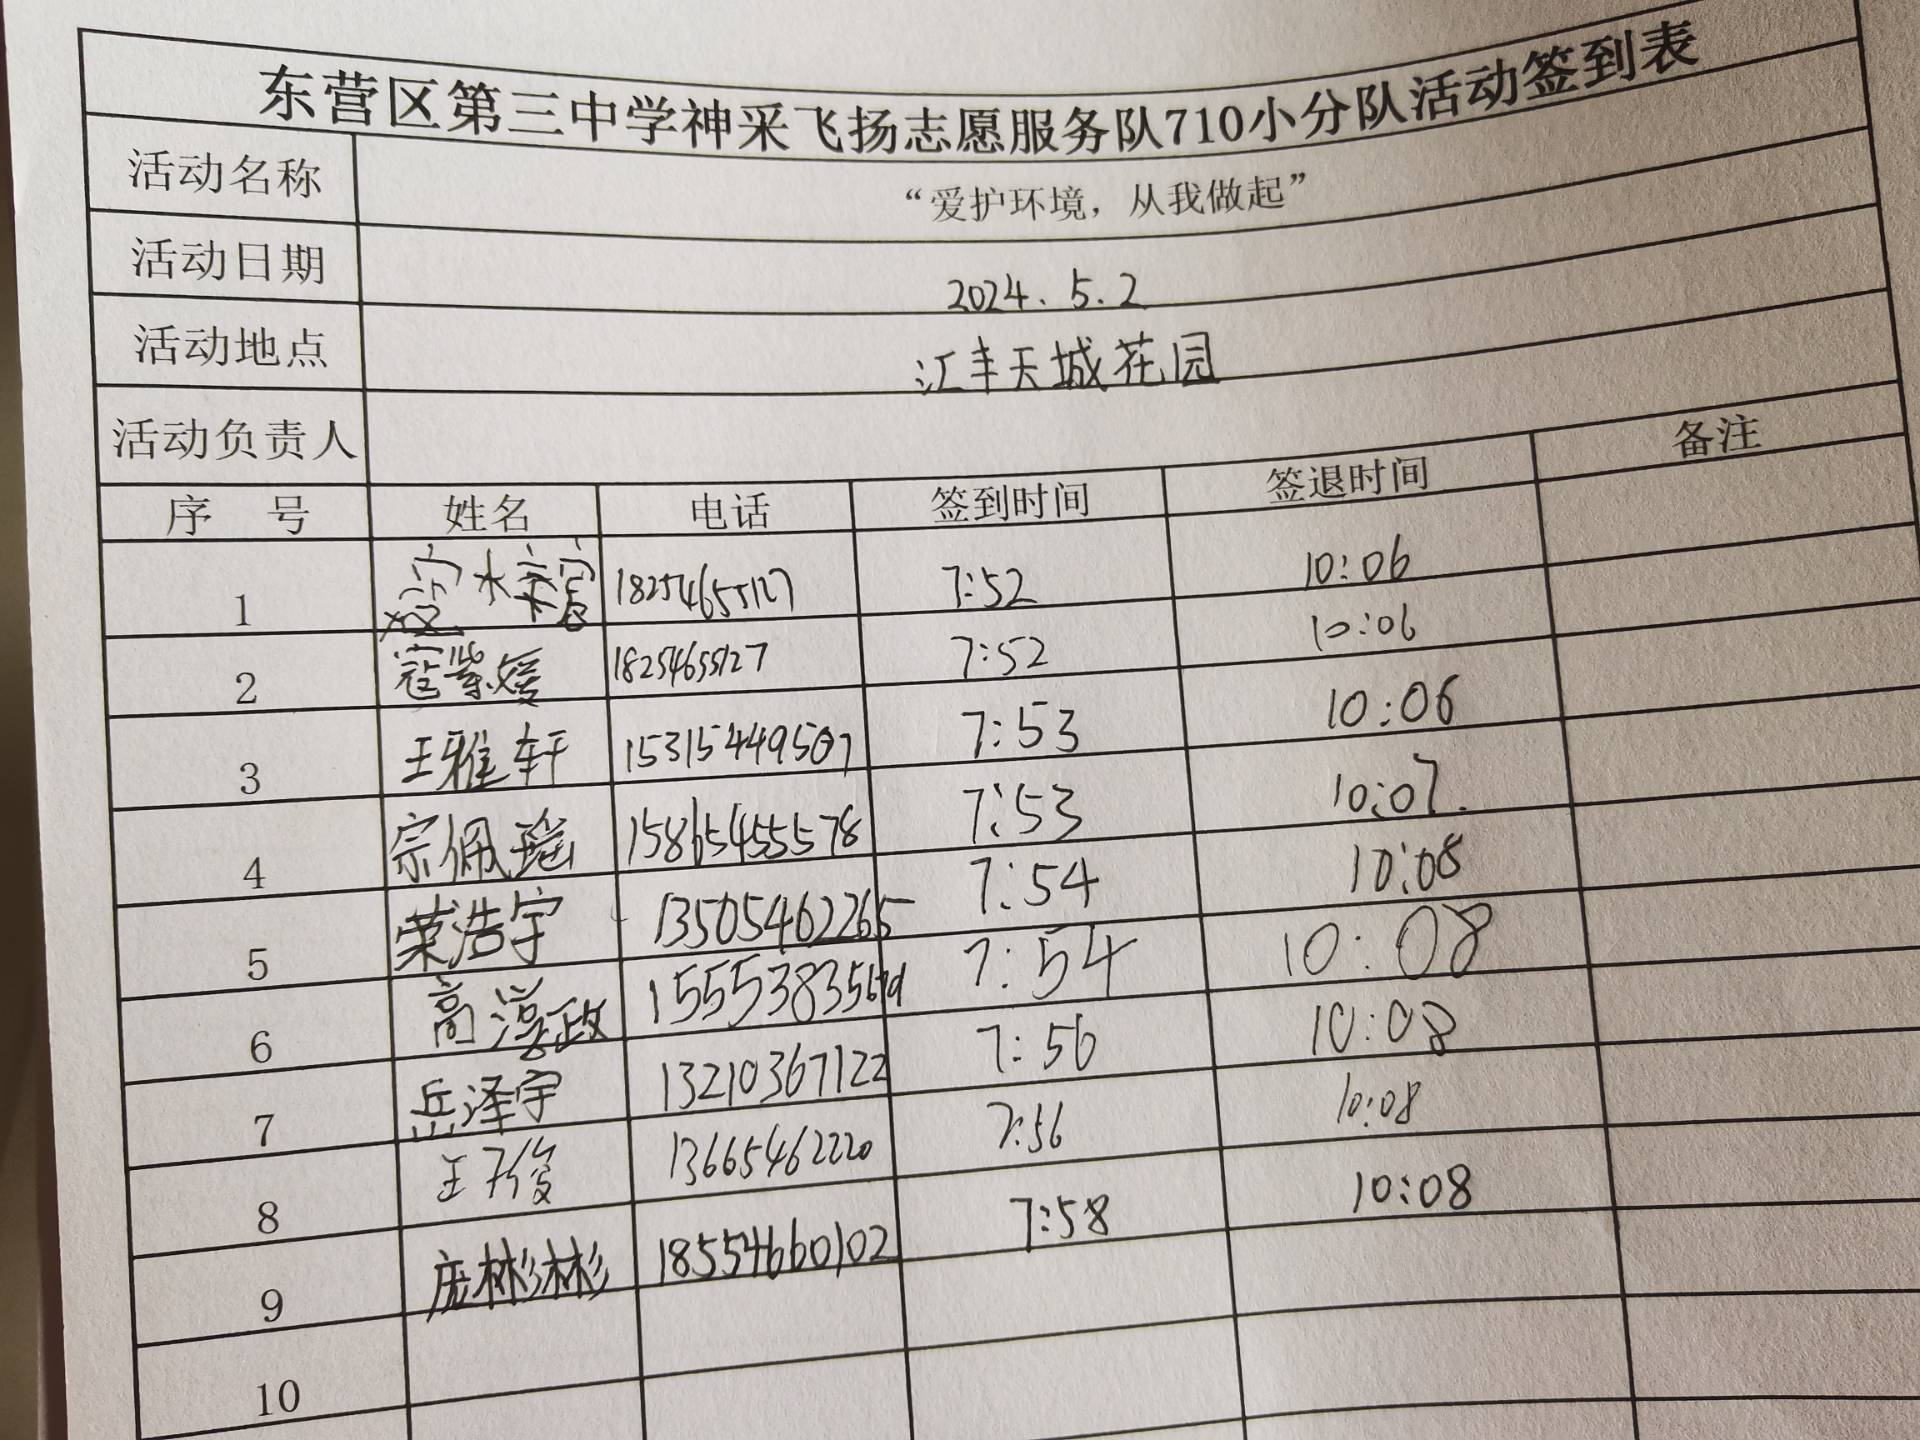 东营区第三中学神采飞扬志愿服务队710小分队活动签到表
活动名称 “爱护环境，从我做起”
活动日期 2024.5.2
活动地点 汇丰天城花园
活动负责人
序 号 姓名 电话 签到时间 签退时间 备注
1 18254655127 7:52 10:06
2 寇紫媛 18254655127 7:52 10:06
3 王雅轩 15315449507 7:53 10:06
4 宗佩瑶 15865455578 7:53 10:07.
5 荣浩宇 13505462265 7:54 10:08
6 高滢政 7:54 10:08
7 岳泽宇 13210367122 7:56 10:08
8 13665462220 7:56 10:08
9 庞彬彬 18554660102 7:58 10:08
10